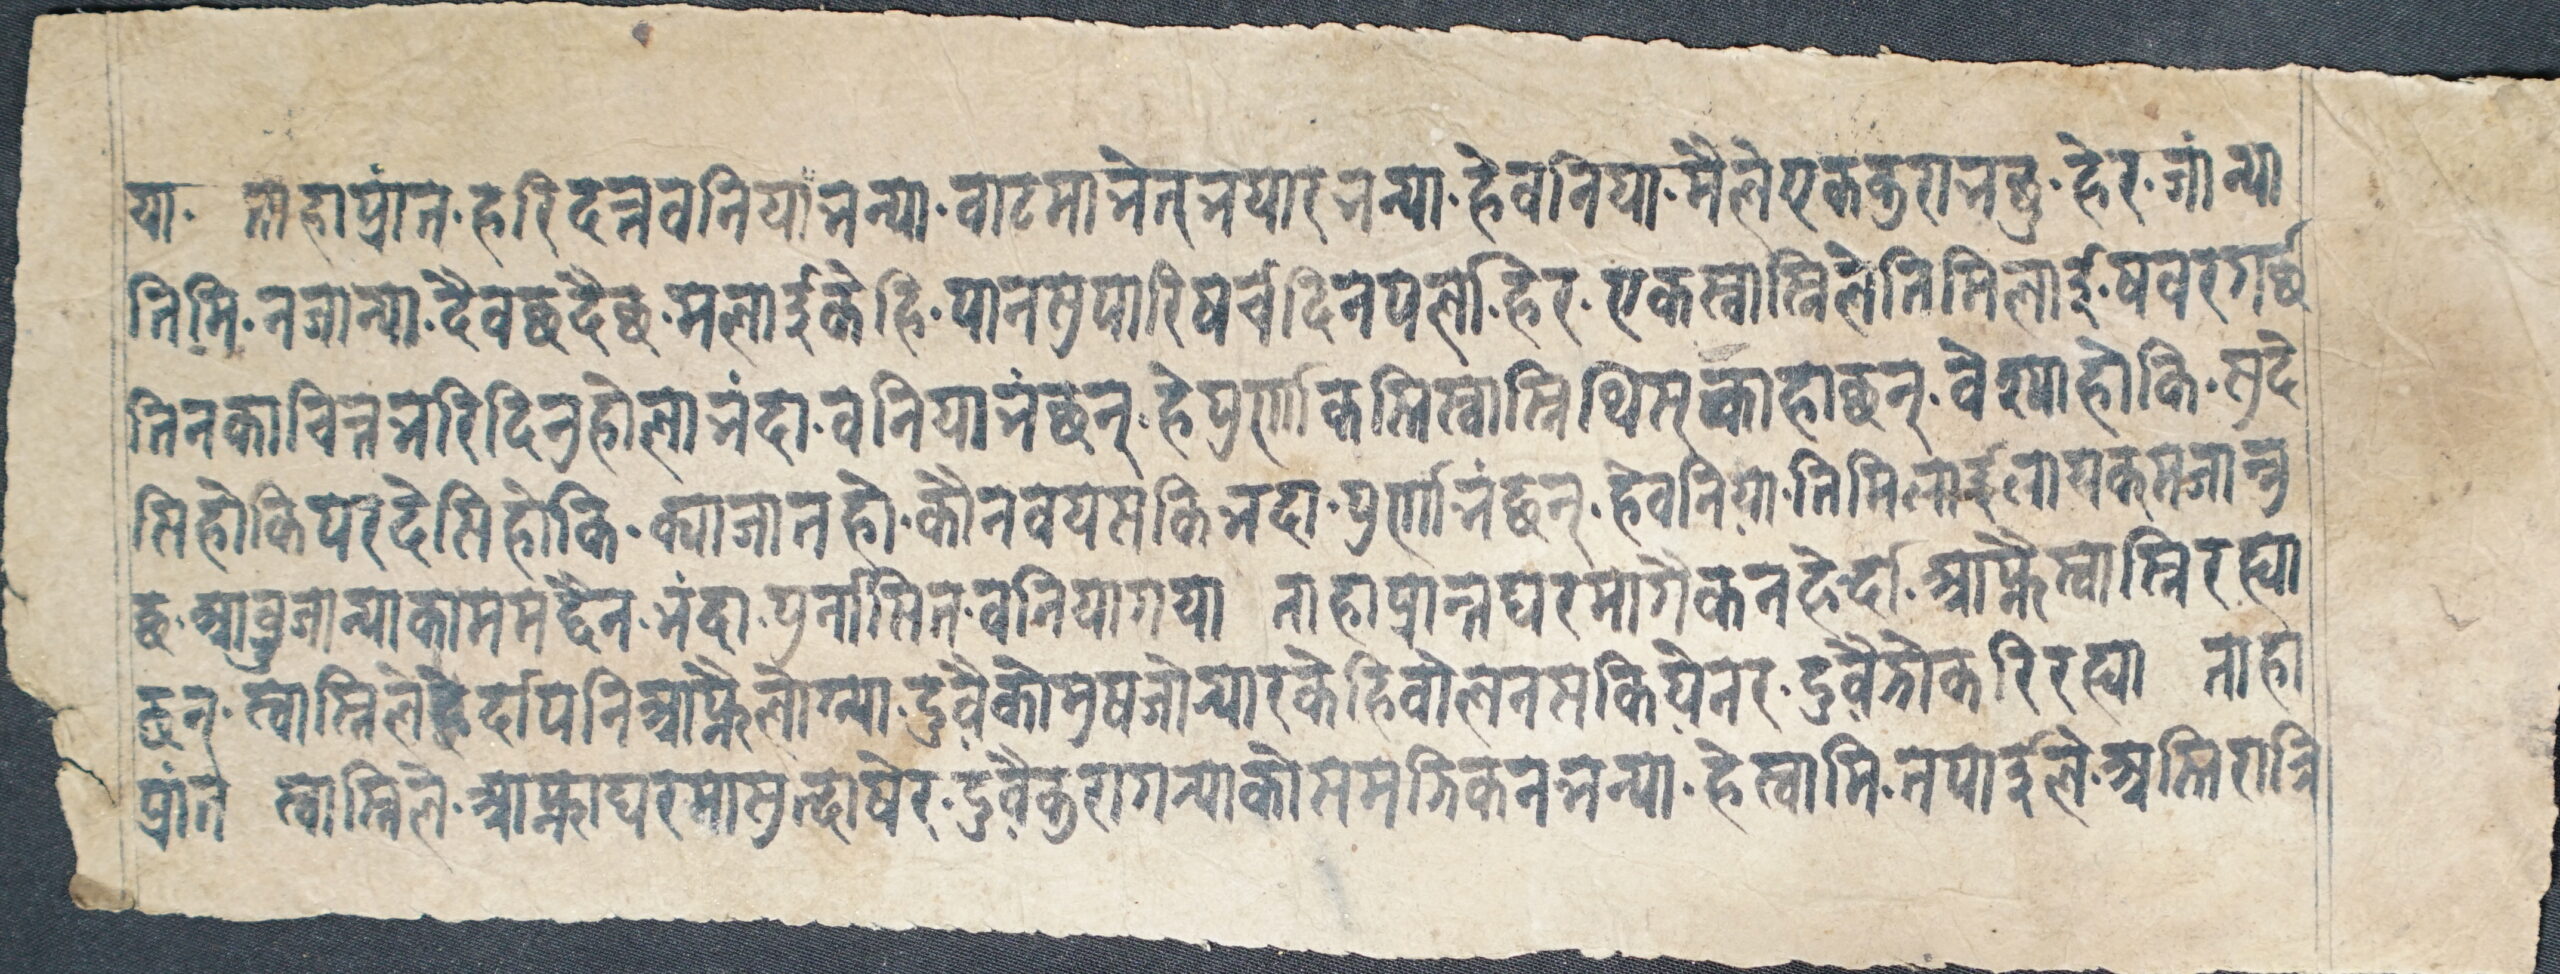 या. ताहाप्रांत.हरिदत्तवनियाभन्या.वाटमाभेत्भयारभन्या.हेवनिया.मैलेएककुराभंछु.हेर.जांन्या
तिमि.नजान्या.दैवछदैछ.मलाईकेहि.पानसुपारिषर्चदिनपर्ला.हेर.एकस्वास्निलेतिमिलाई.षवरगर्छ
तिनकाचित्तभरिदिनुहोलाभंदा.वनियाभंछन्.हेपुर्णाकस्तिस्वास्निथिस्काहाछन्.वेश्याहोकि.सुदे
सिहोकिपरदेसिहोकि.क्याजातहो.कौनवयसकिभदा.पुर्णाभंछन्.हेवनिया.तिमिलाईलायकसजान्नु
छ.आवुजान्याकामसछैन.भंदा.पुर्नासित.वनियागया ताहाप्रान्तघरमागैकनहेर्दा.आफ्नैस्वास्निरह्या
छन्.स्वास्निलेहेर्दापनिआफ्नैलोग्न्या.दुवैकोमुषजोन्यारकेहिवोलनसकियेनर.दुवैझोकरिरह्या ताहा
प्रांत स्वास्निले.आफ्नाघरमासुत्द्राषेर.दुवैकुरागन्याकोसमझिकनभन्या.हेस्वामि.नपाईले.अस्तिरात्रि